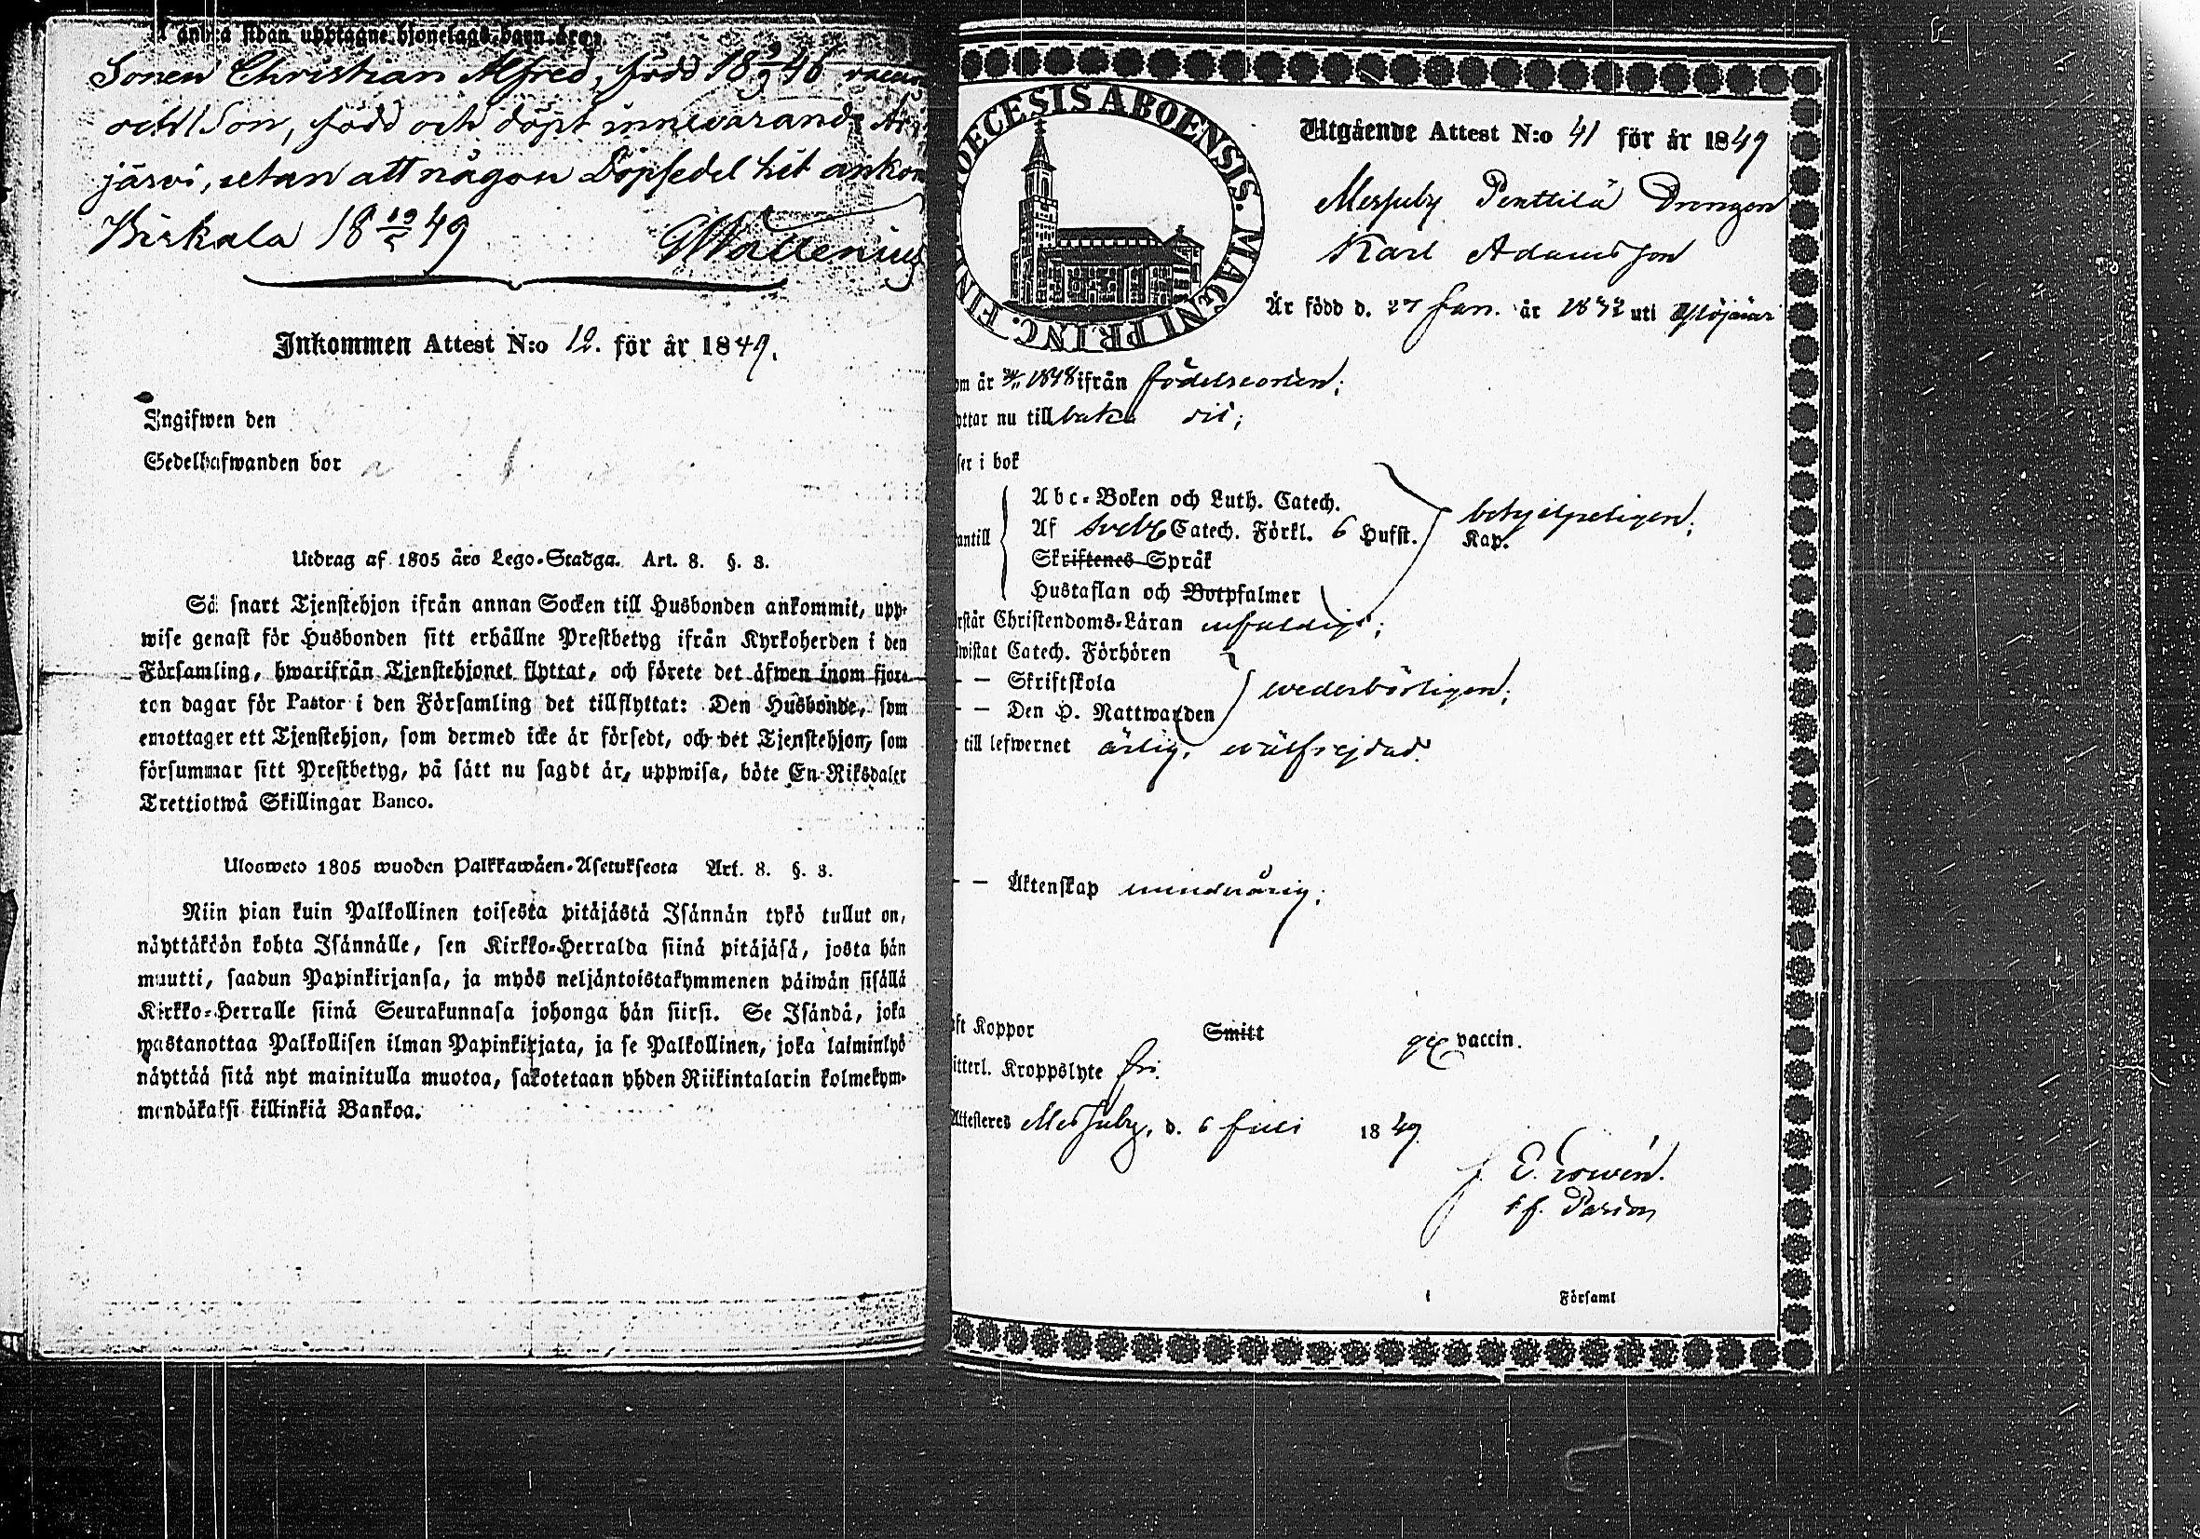 andra sidan upptagne hjonelags barn äro:
Sonen Christian Alfred, född 18 9/9 46
och 1 Son, född och döpt innevarande År
järvi, utan att någon Döpsedel hit ankom
Birkala 18 19/5 49 GWallenius
Inkommen Attest N:o 12. för år 1849.
Ingifwen den
Sedelhafwanden bor
Utdrag af 1805 års Lego-Stadga. Art. 8. §. 8.
Så snart Tjenstehjon ifrån annan Socken till Husbonden ankommit, upp-
wise genast för Husbonden sitt erhållne Prestbetyg ifrån Kyrkoherden i den
Församling, hwarifrån Tjenstehjonet flyttat, och förete det äfwen inom fjor-
ton dagar för Pastor i den Församling det tillflyttat: Den Husbonde, som
emottager ett Tjenstehjon, som dermed icke är försedt, och det Tjenstehjon, som
försummar sitt Prestbetyg, på sätt nu sagdt är, uppwisa, böte En Riksdaler
Trettiotwå Skillingar Banco.
Ulosweto 1805 wuoden Palkkawäen-Asetuksesta Art. 8. §. 8.
Niin pian kuin Palkollinen toisesta pitäjästä Isännän tykö tullut on,
näyttäköön kohta Isännälle, sen Kirkko-Herralda siinä pitäjäsä, josta hän
muutti, saadun Papinkirjansa, ja myös neljäntoistakymmenen päiwän sisällä
Kirkko-Herralle siinä Seurakunnasa johonga hän siirsi. Se Isändä, joka
wastanottaa Palkollisen ilman Papinkirjata, ja se Palkollinen, joka laiminlyö
näyttää sitä nyt mainitulla muotoa, sakotetaan yhden Riikintalarin kolmekym-
mendäkaksi killinkiä Bankoa.
DIOECESIS ABOENSIS. MAGNI PRINC. FINL
Utgående Attest N:o 41 för år 1849
Messuby Penttilä Drengen
Karl Adamsson
Är född d. 27 Jan. år 1832 uti Ylöjärvi
om år 1848 ifrån födelseorten;
yttar nu till baka dit;
ser i bok
antill
Abc-Boken och Luth. Catech.
Af Sveb. Catech. Förkl. 6 Hufst. Kap.
behjelpeligen;
Skriftenes Språk
Hustaflan och Botpsalmer
rstår Christendoms-Läran enfaldigt;
iwistat Catech. Förhören
– – Skriftskola
wederbörligen;
– – Den H. Nattwarden
till lefwernet ärlig, wälfrejdad.
– – Äktenskap minderårig;
ft Koppor Smitt gm vaccin.
itterl. Kroppslyte fri.
Attesteres Messuby, d. 6 Juli 1849
E. Lowén.
Församl